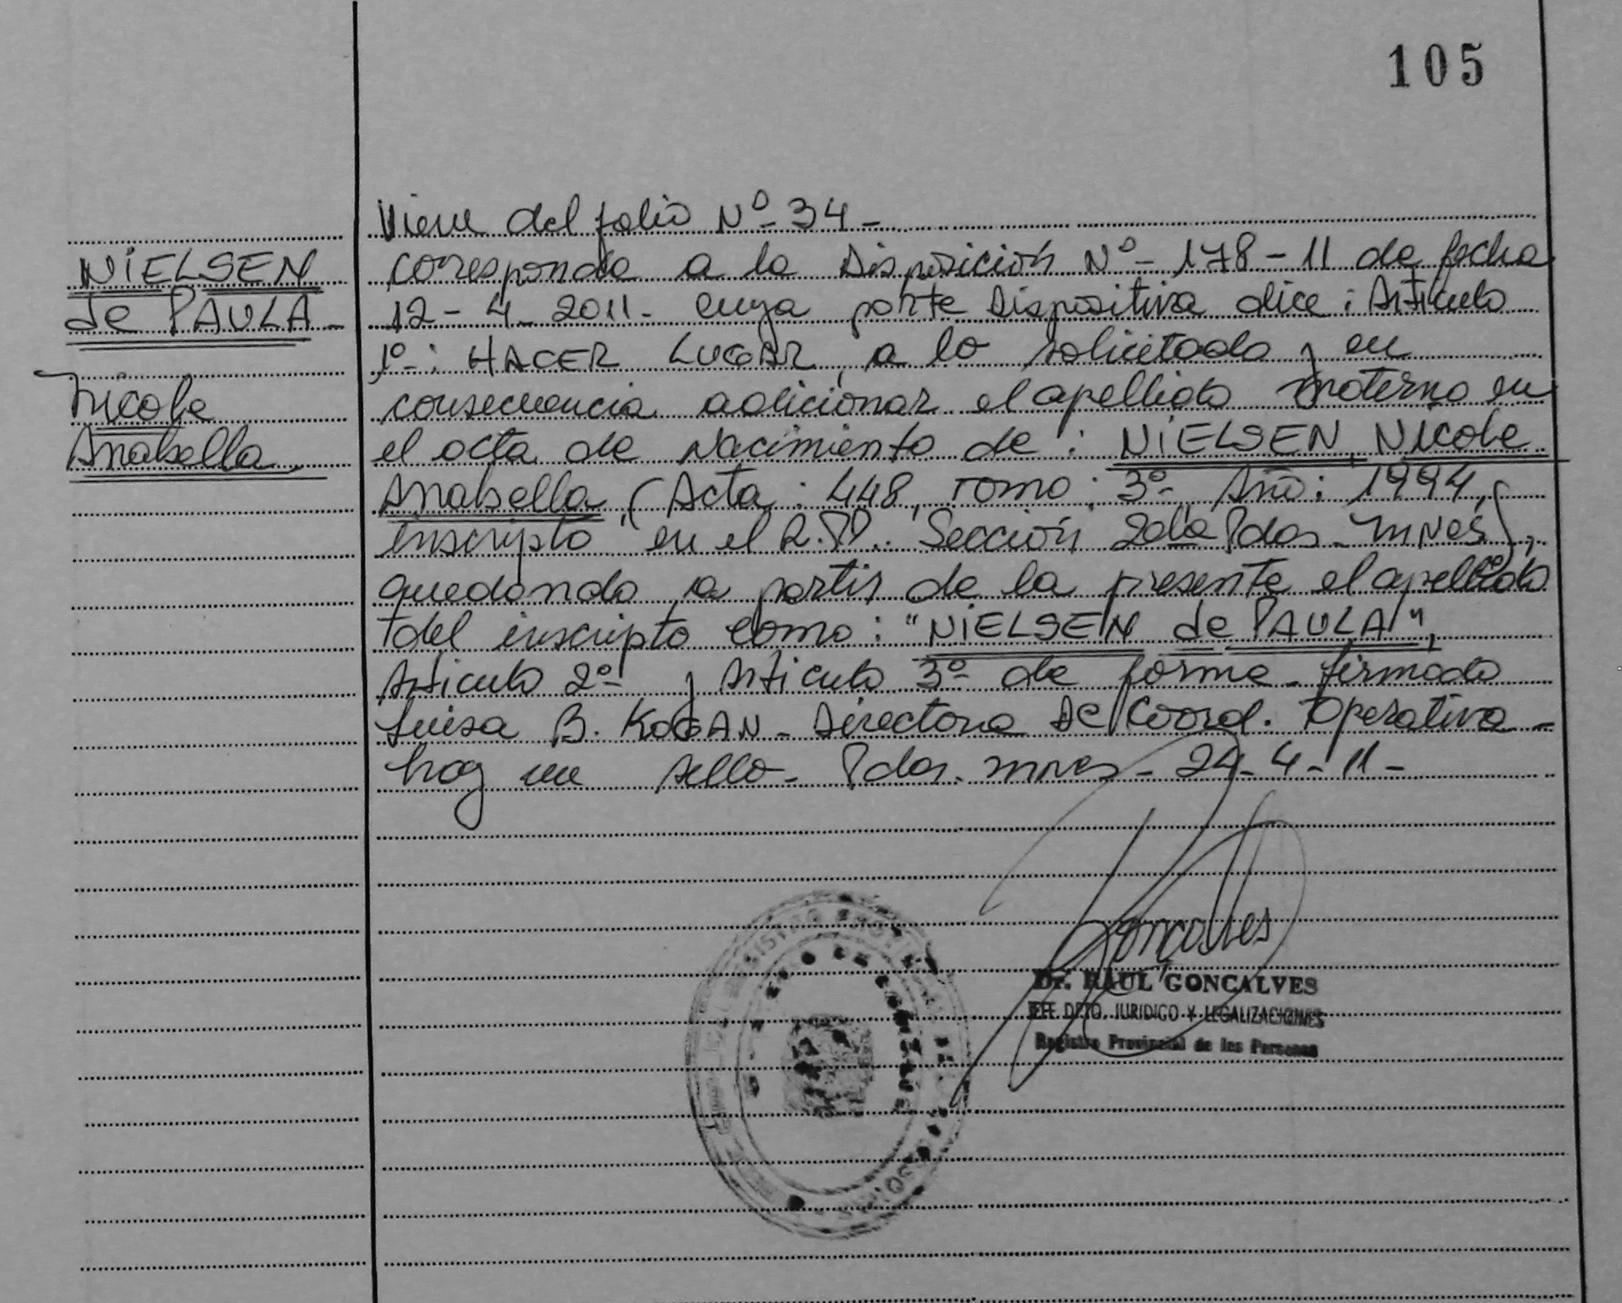 105
Viene del folio Nº 34 -
NIELSEN
de PAULA -
Nicole
Anabella
corresponde a la Disposición Nº - 178 - 11 de fecha
12 - 4 - 2011 - cuya parte Dispositiva dice : Artículo
1º - : HACER LUGAR, a lo solicitado y en
consecuencia adicionar el apellido materno en
el acta de Nacimiento de : NIELSEN, Nicole
Anabella, (Acta : 448, Tomo : 3º - Año : 1994,
inscripto en el R.P.P. Sección 2da Pdas - Mnes),
quedando a partir de la presente el apellido
del inscripto como : "NIELSEN de PAULA",
Artículo 2º y Artículo 3º de forma - firmado
Luisa B. KOGAN - Directora de Coord. Operativa -
hay un sello - Pdas. Mnes - 24 - 4 - 11 -
Goncalves
Dr. RAUL GONCALVES
JEFE DPTO. JURIDICO Y LEGALIZACIONES
Registro Provincial de las Personas